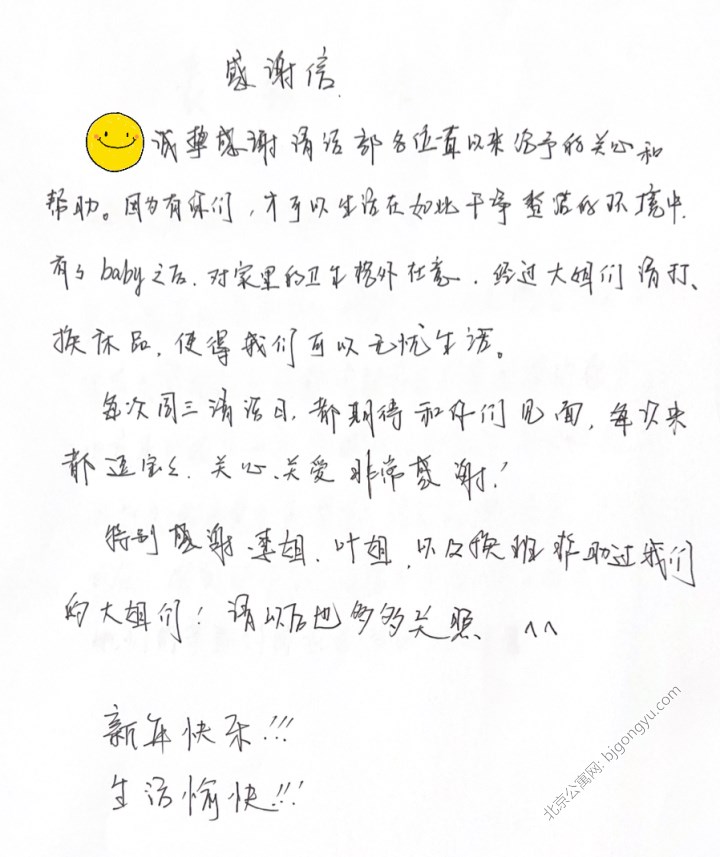 感谢信
诚挚感谢清洁部各位一直以来给予的关心和
帮助。因为有你们,才可以生活在如此干净整洁的环境中.
有了baby之后.对家里的卫生格外在意.经过大姐们清打、
换床品,使得我们可以无忧生活。
每次周三清洁日,都期待和你们见面,每次来
都逗宝宝.关心、关爱非常感谢!
特别感谢 姐.叶姐,以及换班帮助过我们
的大姐们!请以后也多多关照 ^^
新年快乐!!!
生活愉快!!!
北京公寓网: bjgongyu.com